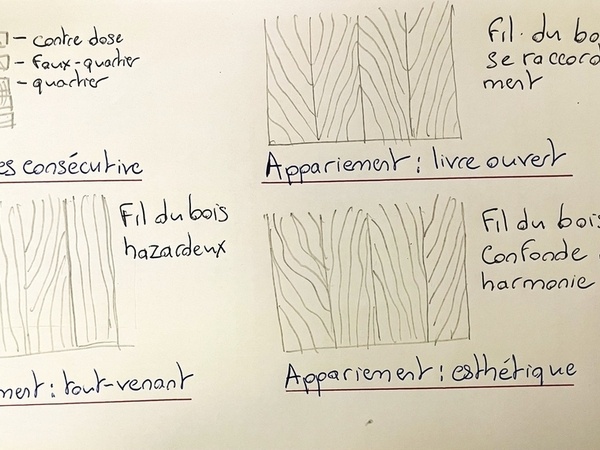 contre dose
faux-quartier
quartier
consécutive
Fil du
se
ment
Appariement : livre ouvert
Fil du bois
hazardeux
tout-venant
Fil du bois
Confonde
harmonie
Appariement : esthétique